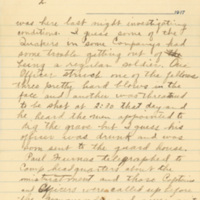 2
1917
was here last night investigating
conditions. I guess some of the
Quakers in some Companies had
some trouble getting out of
being a regular soldier. One
officer struck one of the fellows
three pretty hard blows in the
face and another was threatened
to be shot at 2:30 that day and
he heard the men appointed to
dig the grave but I guess his
officer was drunk and was
sent to the guard house.
Paul Furnas telegraphed to
Camp headquarters about the
mistreatment and those Captains
and officers were called up before
the